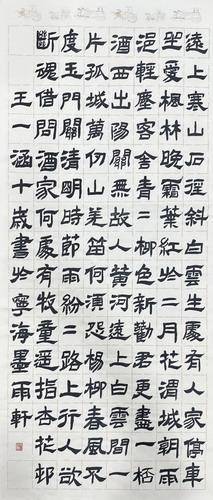 遠上寒山石徑斜白雲生處有人家停車
坐愛楓林晚霜葉紅於二月花渭城朝雨
浥輕塵客舍青二柳色新勸君更盡一杯
酒西出陽關無故人黃河遠上白雲間一
片孤城萬仞山羌笛何須怨楊柳春風不
度玉門關清明時節雨紛二路上行人欲
斷魂借問酒家何處有牧童遙指杏花邨
王一涵十歲書於寧海墨雨軒